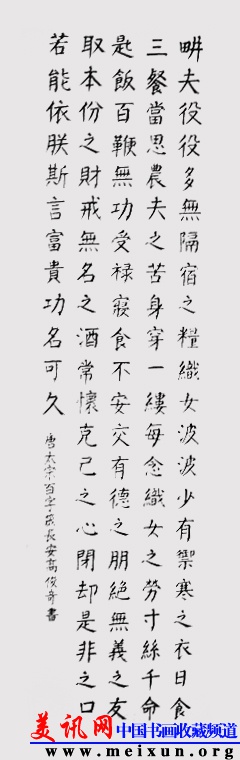 畊夫役役多無隔宿之糧織女波波少有禦寒之衣日食
三餐當思農夫之苦身穿一縷每念織女之勞寸絲千命
匙飯百鞭無功受禄寢食不安交有德之朋絶無義之友
取本份之財戒無名之酒常懷克己之心閉却是非之口
若能依朕斯言富貴功名可久
唐太宗百字箴長安高俊奇書
美讯网 中国书画收藏频道
www.meixun.org